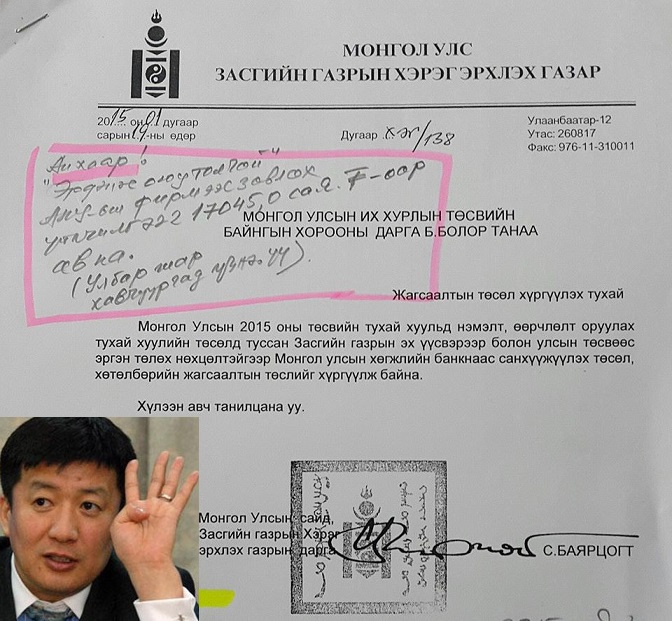 МОНГОЛ УЛС
ЗАСГИЙН ГАЗРЫН ХЭРЭГ ЭРХЛЭХ ГАЗАР
2015 оны 01 дугаар
сарын 14-ны өдөр
Дугаар ХЭГ/138
Улаанбаатар-12
Утас: 260817
Факс: 976-11-310011
Анхаар!
"Эрдэнэс оюутолгой"
фирмээс зөвлөх
үйлчилгээ 17045,0 сая. ₮-өөр
авна.
(Улбар шар
хавчуургад үзнэ үү).
МОНГОЛ УЛСЫН ИХ ХУРЛЫН ТӨСВИЙН
БАЙНГЫН ХОРООНЫ ДАРГА Б.БОЛОР ТАНАА
Жагсаалтын төсөл хүргүүлэх тухай
Монгол Улсын 2015 оны төсвийн тухай хуульд нэмэлт, өөрчлөлт оруулах
тухай хуулийн төсөлд туссан Засгийн газрын эх үүсвэрээр болон улсын төсвөөс
эргэн төлөх нөхцөлтэйгээр Монгол улсын хөгжлийн банкнаас санхүүжүүлэх төсөл,
хөтөлбөрийн жагсаалтын төслийг хүргүүлж байна.
Хүлээн авч танилцана уу.
Монгол Улсын сайд,
Засгийн газрын Хэрэг
эрхлэх газрын дарга
С.БАЯРЦОГТ